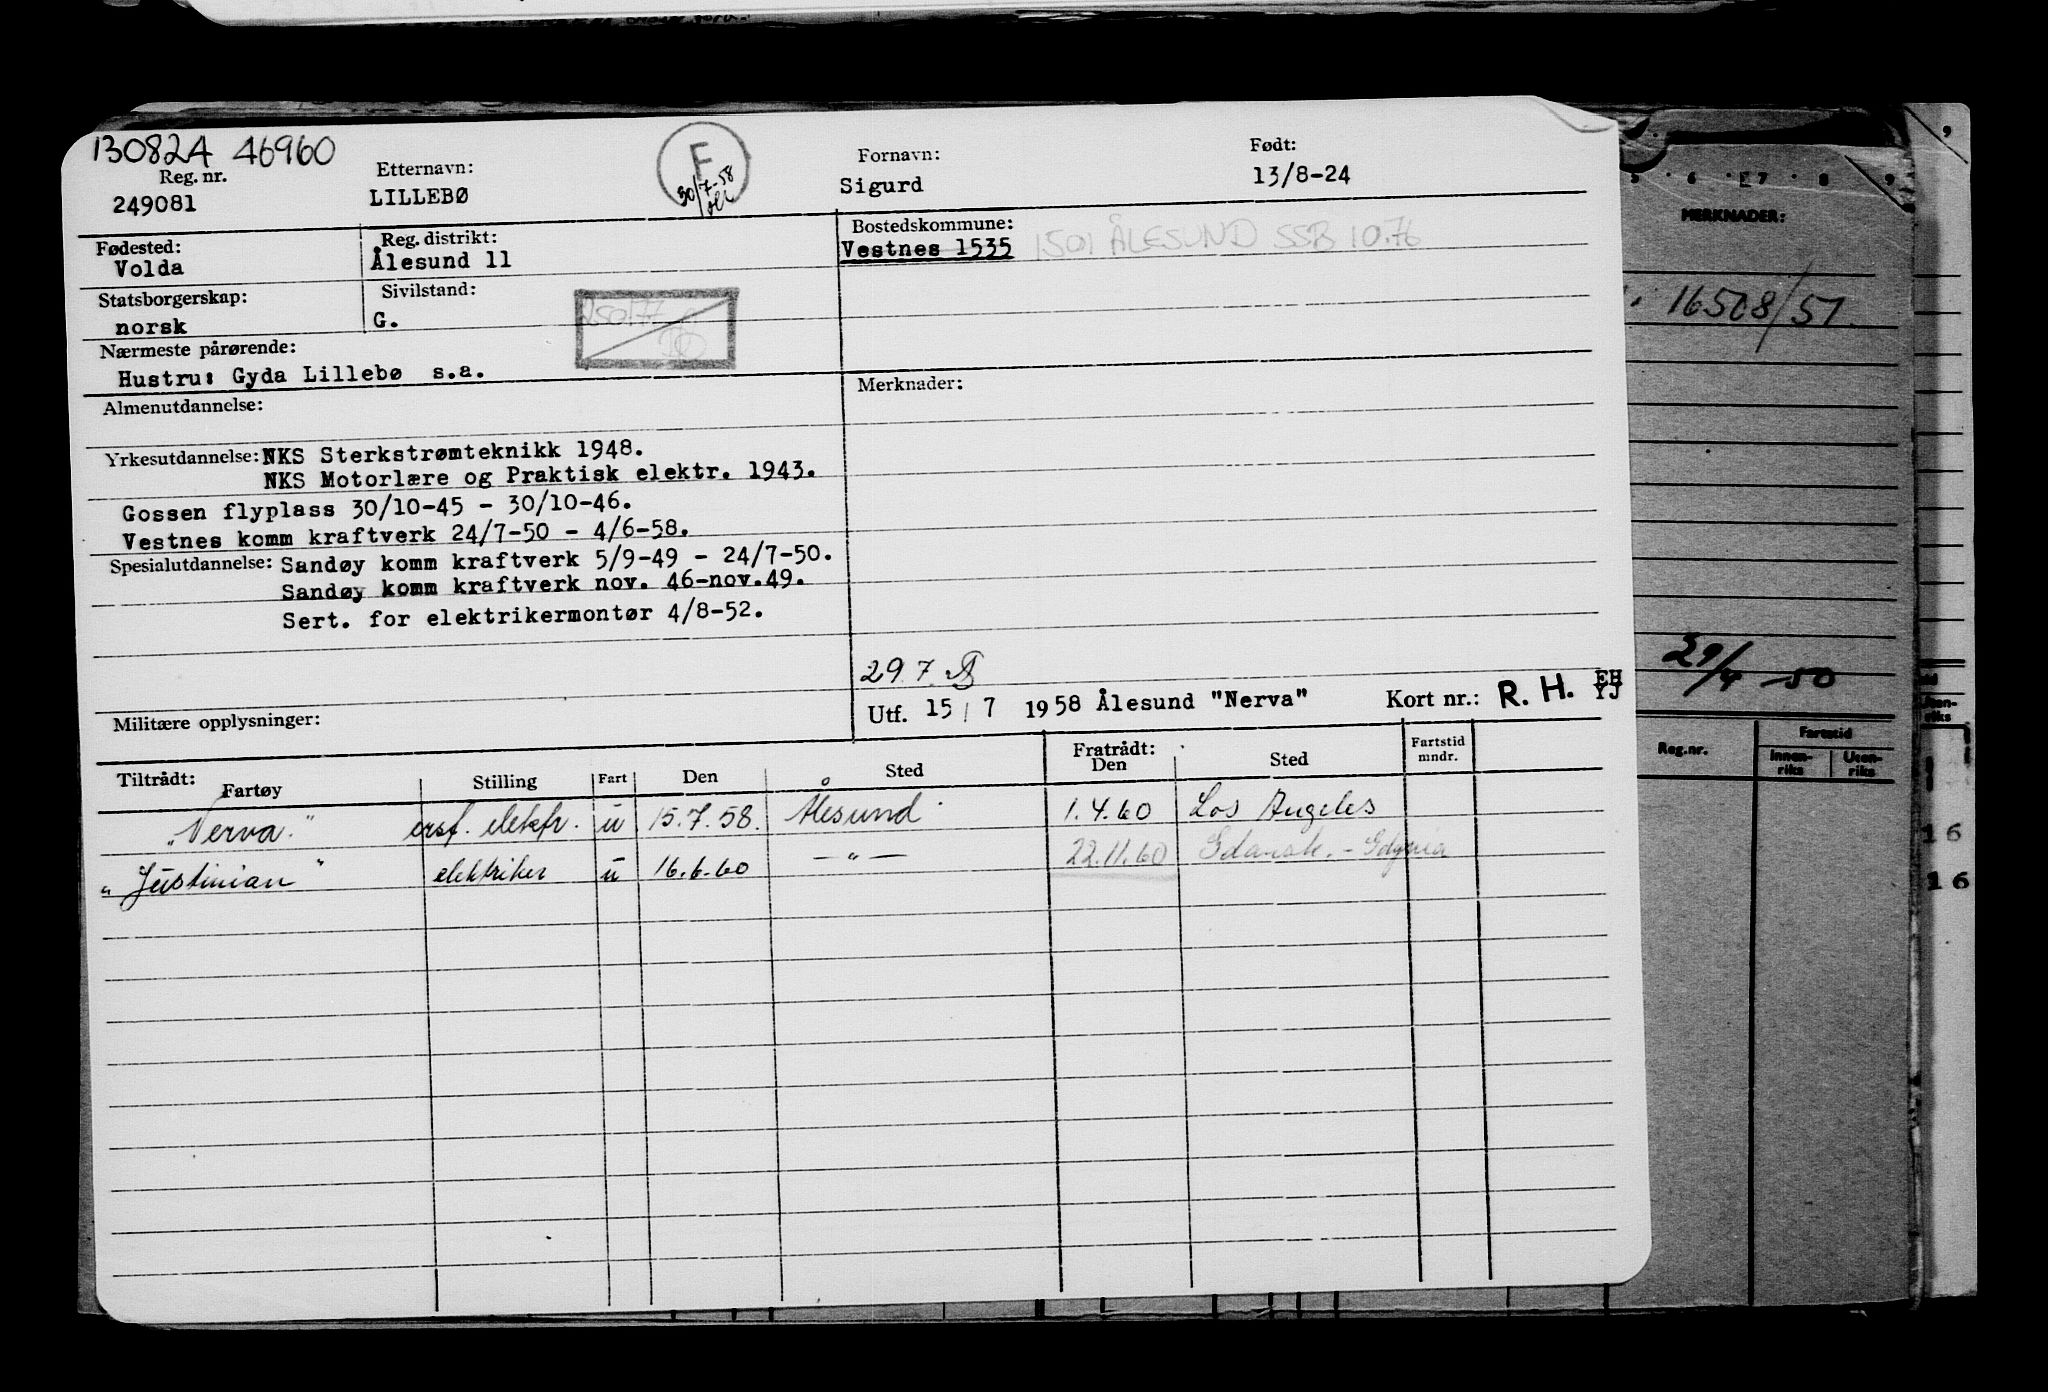 130824 46960
Reg. nr.
249081
Etternavn:
LILLEBØ
F
30/7-58
Fornavn:
Sigurd
Født:
13/8-24
Fødested:
Volda
Reg. distrikt:
Ålesund 11
Bostedskommune:
Vestnes 1535 1501 ÅLESUND SSB 10.76
Statsborgerskap:
norsk
Sivilstand:
G.
250177
Nærmeste pårørende:
Hustru: Gyda Lillebø s.a.
Almenutdannelse:
Merknader:
Yrkesutdannelse: NKS Sterkstrømteknikk 1948.
NKS Motorlære og Praktisk elektr. 1943.
Gossen flyplass 30/10-45 - 30/10-46.
Vestnes komm kraftverk 24/7-50 - 4/6-58.
Spesialutdannelse: Sandøy komm kraftverk 5/9-49 - 24/7-50.
Sandøy komm kraftverk nov. 46-nov.49.
Sert. for elektrikermontør 4/8-52.
29.7.
Militære opplysninger:
Utf. 15/7 1958 Ålesund "Nerva" Kort nr.: R. H. EH
YJ
Tiltrådt:
Fartøy Stilling Fart Den Sted
Fratrådt:
Den Sted
Fartstid
mndr.
"Nerva." ersf. elektr. u 15.7.58. Ålesund 1.4.60 Los Angeles
"Justinian" elektriker u 16.6.60 — " — 22.11.60 Gdansk. - Gdynia
6 7 8 9
MERKNADER:
16508/51.
29/4 -50
Reg.nr.
Fartstid
Innen-
riks
Uten-
riks
9
Uten-
riks
16
16